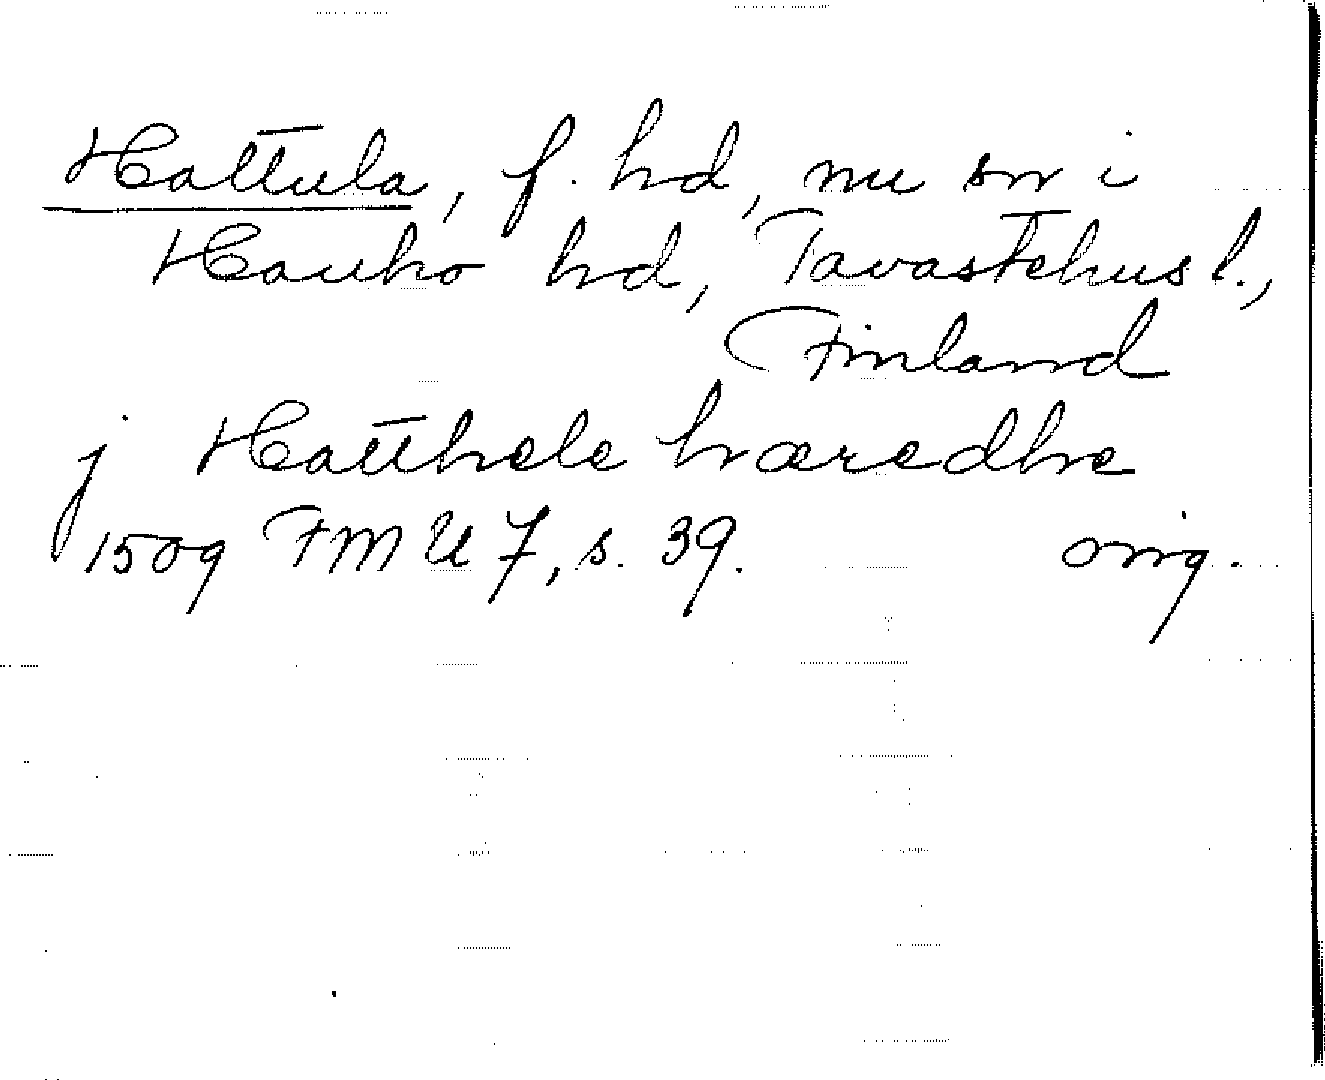 Hattula, f. hd, nu sn i
Hauho hd, Tavastehus l.,
Finland
j Hatthele hæredhe
1509 FMU 7, s. 39. orig.